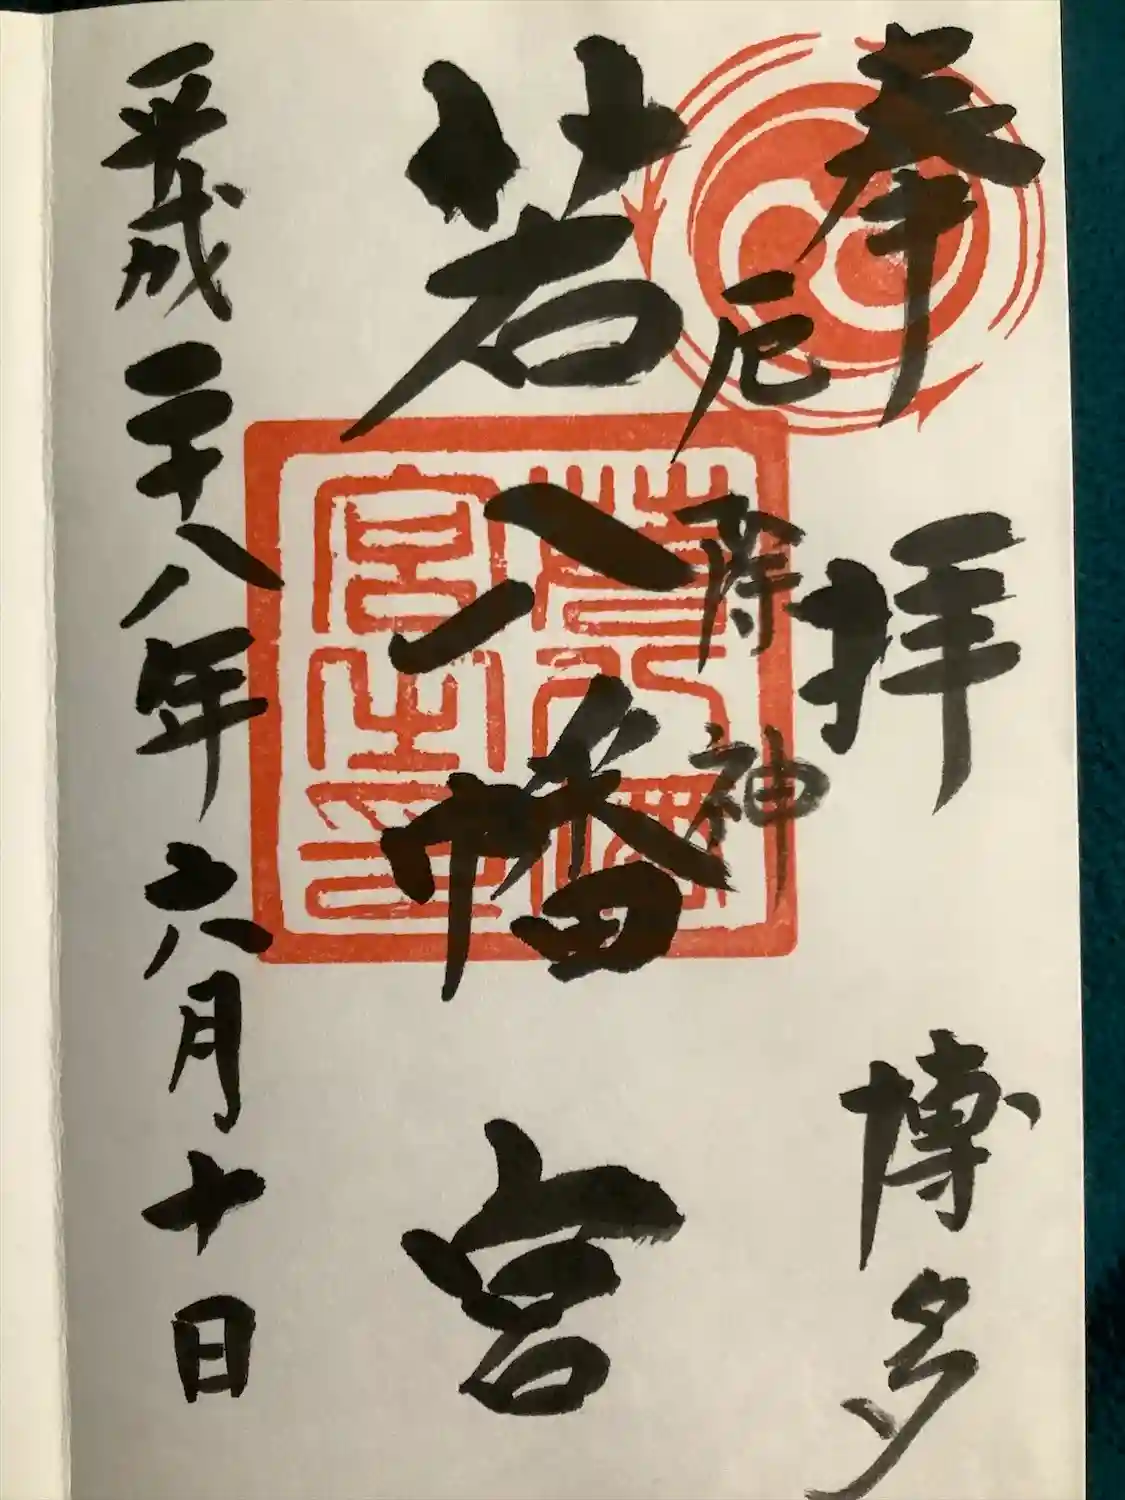 奉拝　博多
厄除神
若八幡宮
若八幡宮之印
平成二十八年六月十日